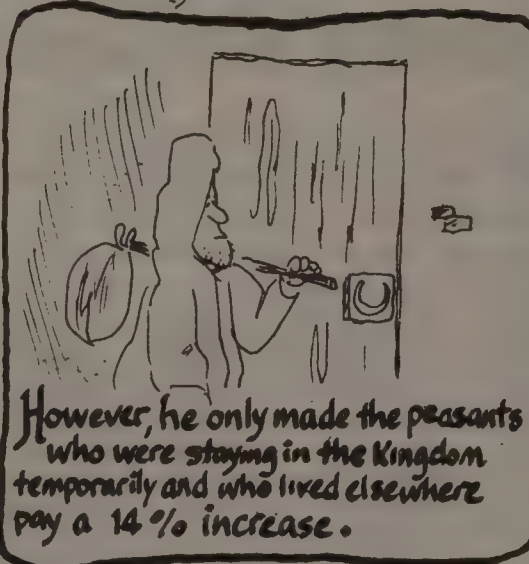 However, he only made the peasants
who were staying in the Kingdom
temporarily and who lived elsewhere
pay a 14% increase.